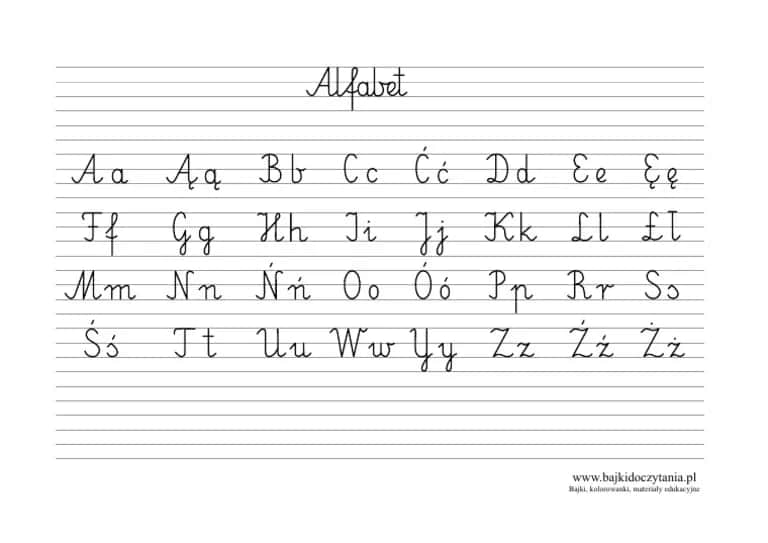 Alfabet
A a Ą ą B b C c Ć ć D d E e Ę ę
F f G g H h I i J j K k L l Ł ł
M m N n Ń ń O o Ó ó P p R r S s
Ś ś T t U u W w Y y Z z Ź ź Ż ż
www.bajkidoczytania.pl
Bajki, kolorowanki, materiały edukacyjne